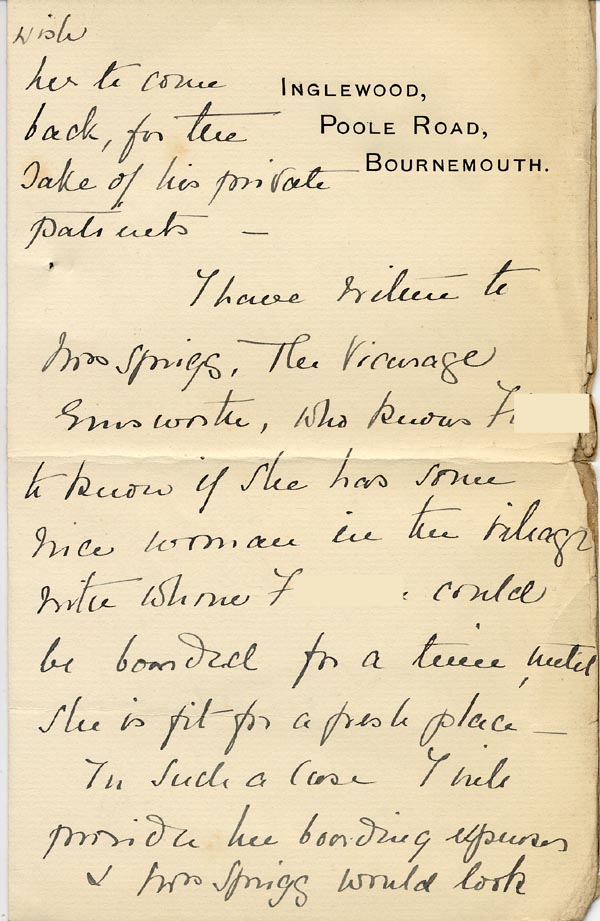 wish
her to come
back, for the
sake of his private
patients —
INGLEWOOD,
POOLE ROAD,
BOURNEMOUTH.
I have written to
Mrs Sprigg, The Vicarage
Emsworth, who knows F
to know if she has some
nice woman in the village
with whom F could
be boarded for a time, until
she is fit for a fresh place —
In such a case I will
provide her boarding expenses
& Mrs Sprigg would look